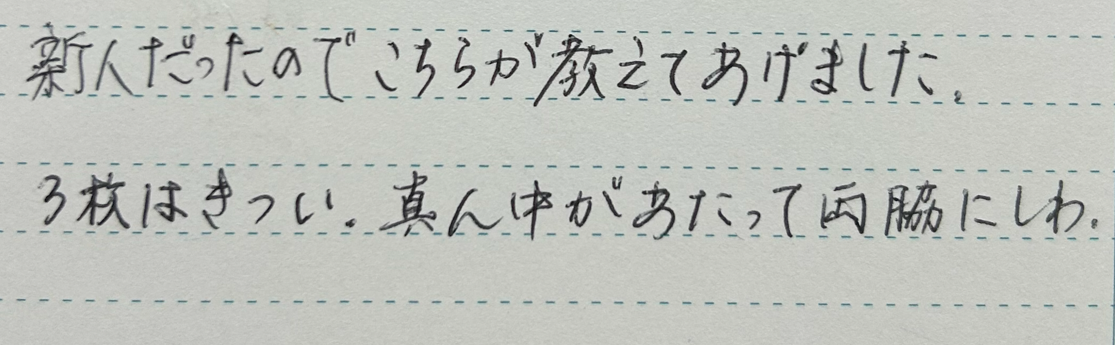 新人だったのでこちらが教えてあげました。
3枚はきつい。真ん中があたって両脇にしわ.